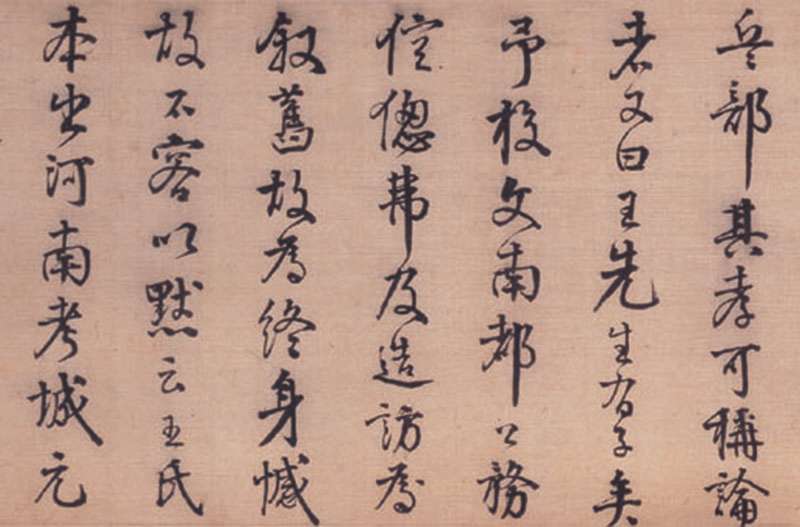 兵部其孝可稱論
者又曰王先生有子矣
予校文南都公務
倥傯弗及造訪為
叙舊故為終身憾
故不容以默云王氏
本出河南考城元